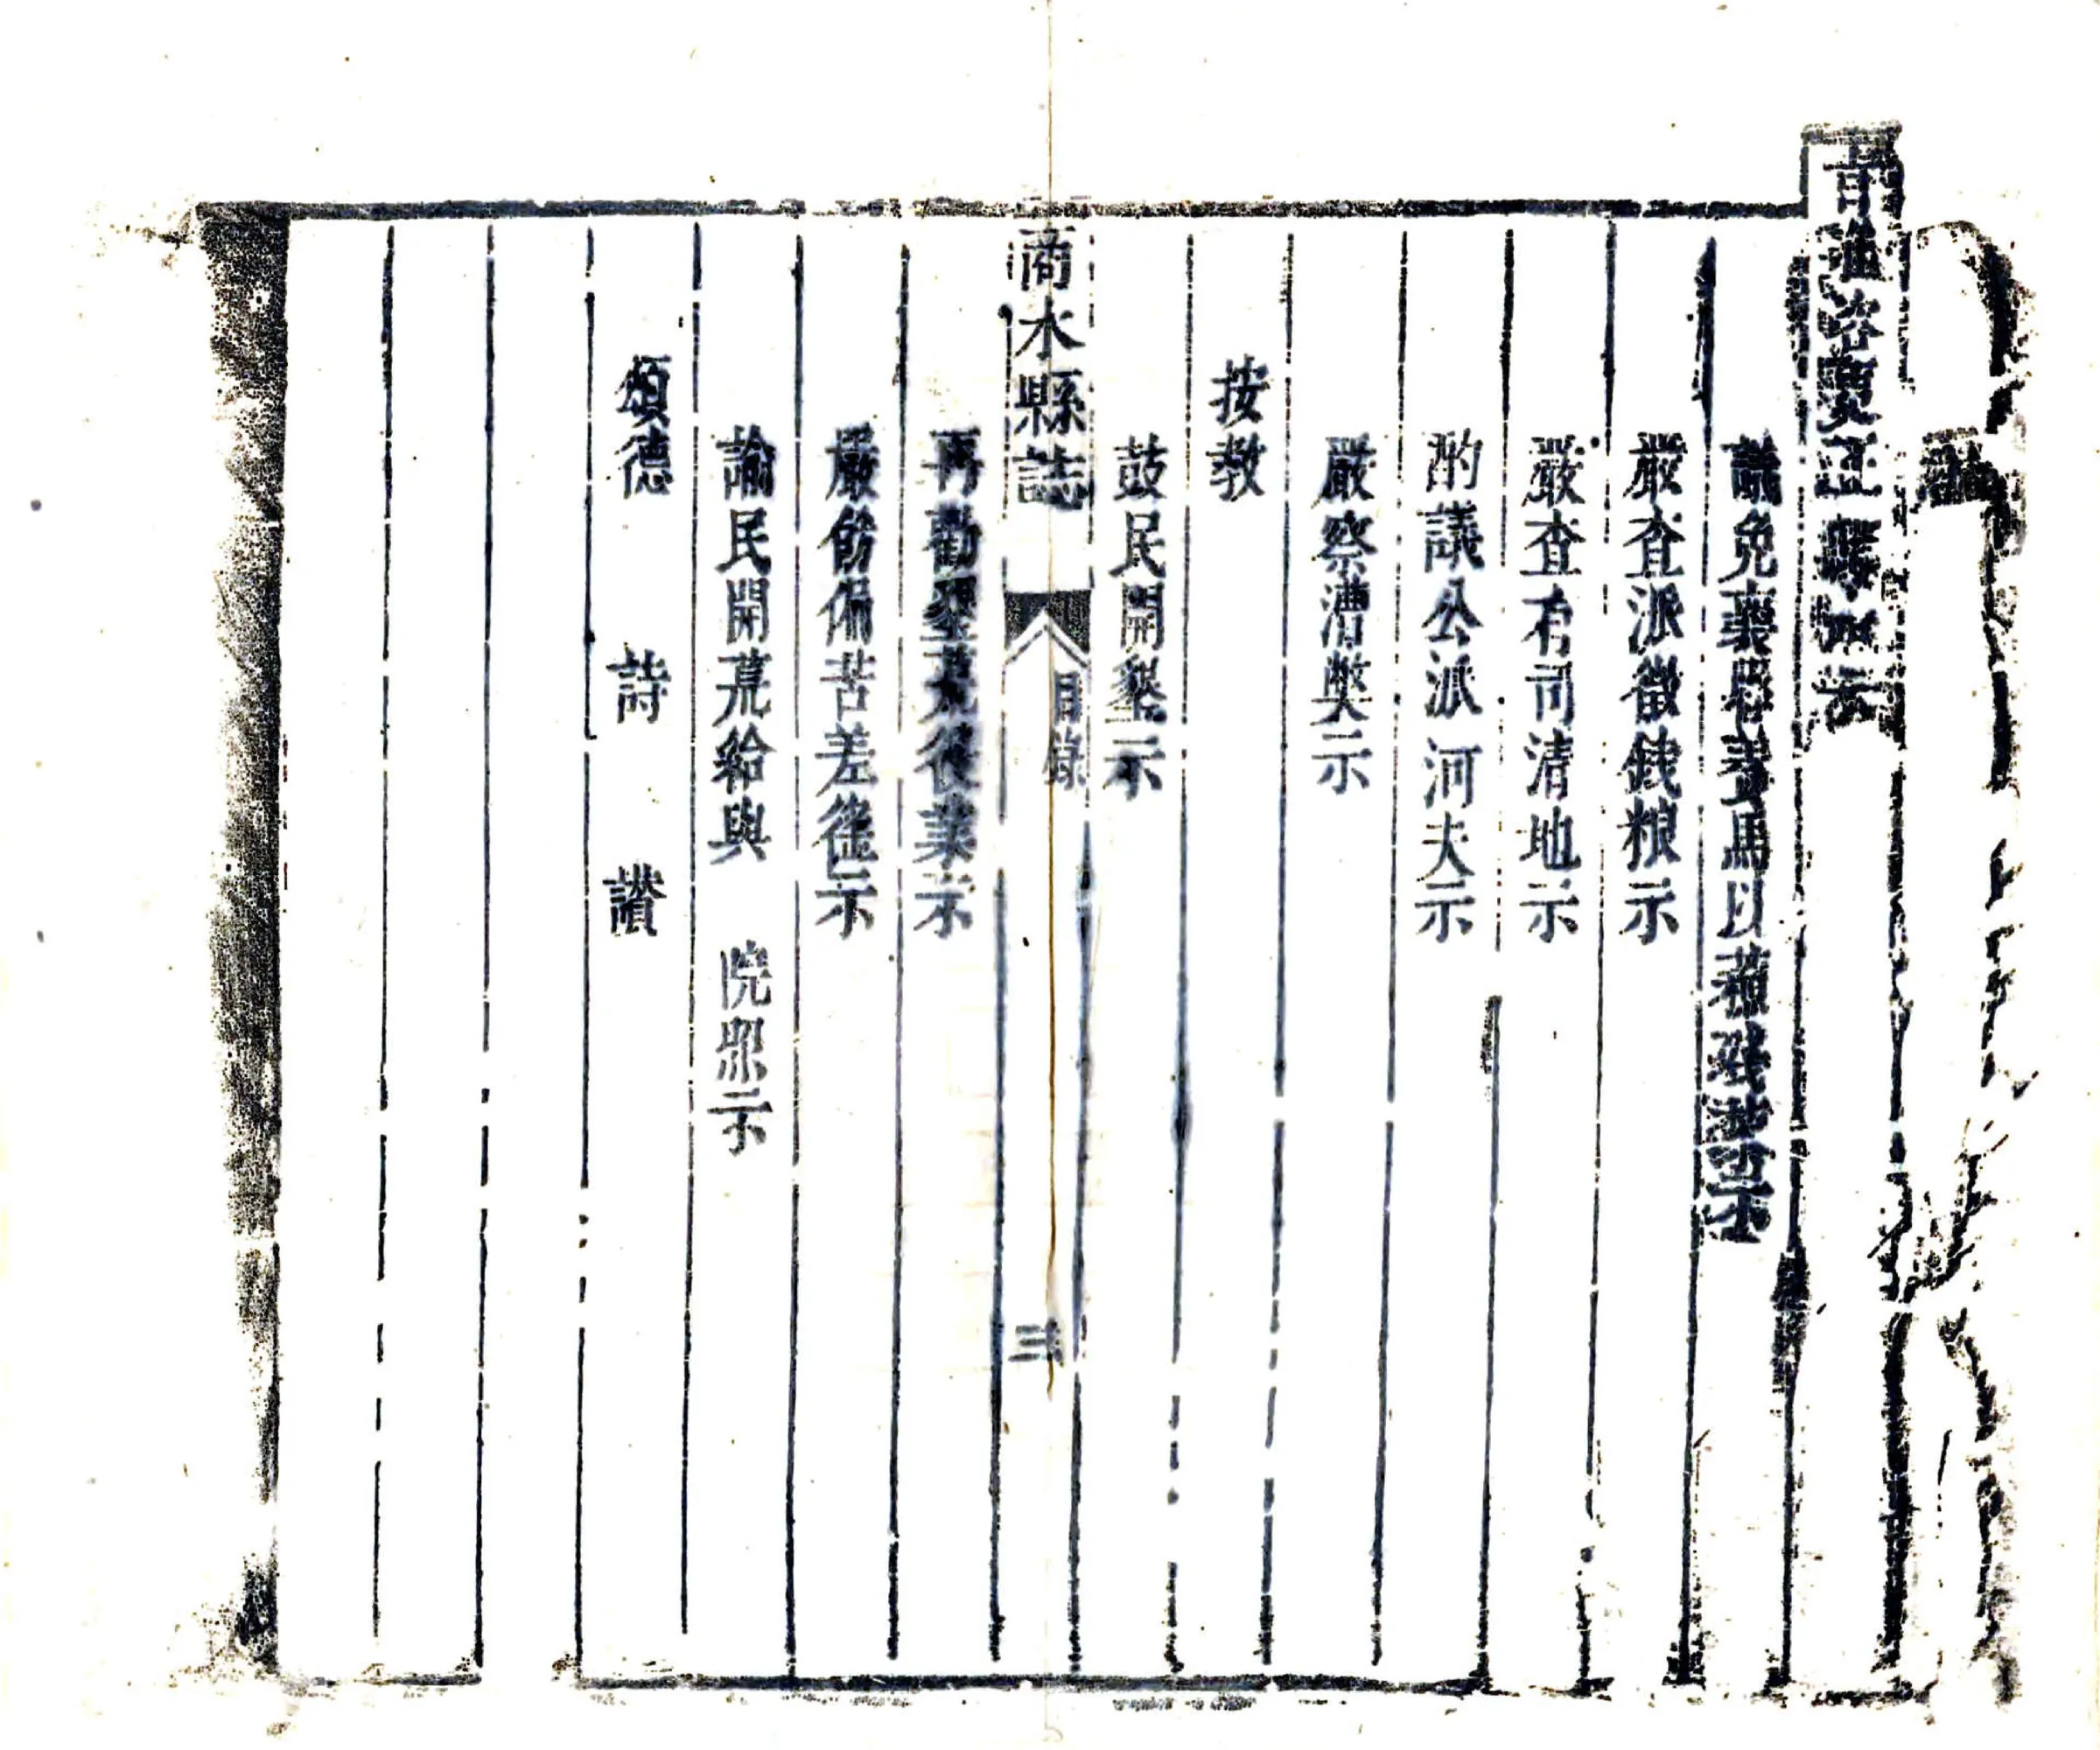 嚴查派徵錢粮示
嚴查有司清地示
酌議公派河夫示
嚴察漕獘示
按敎
鼓民開墾示
商水縣誌
目錄
三
再勸墾荒復業示
嚴飭偏苦差徭示
諭民開荒給與 院照示
頌德 詩 讃